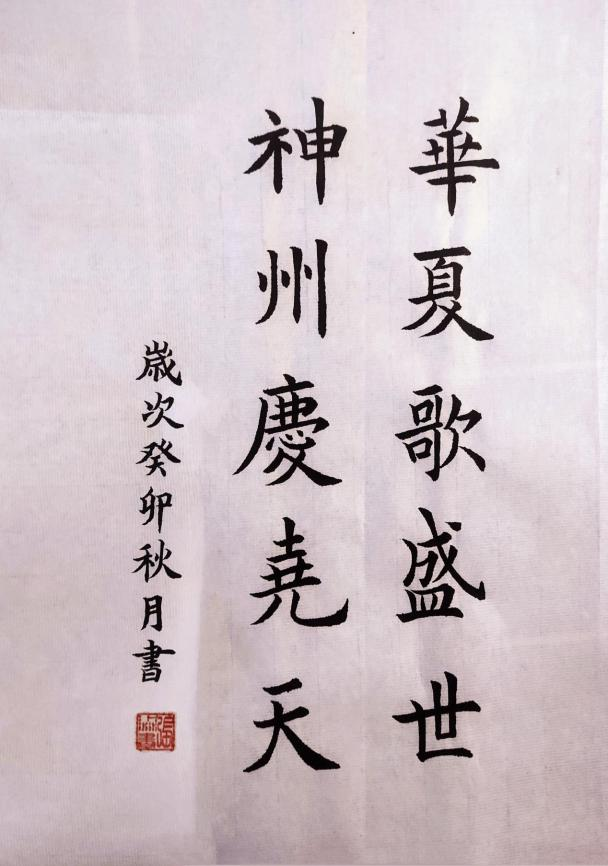 華夏歌盛世
神州慶堯天
歲次癸卯秋月書